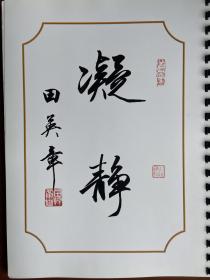 凝静
田英章